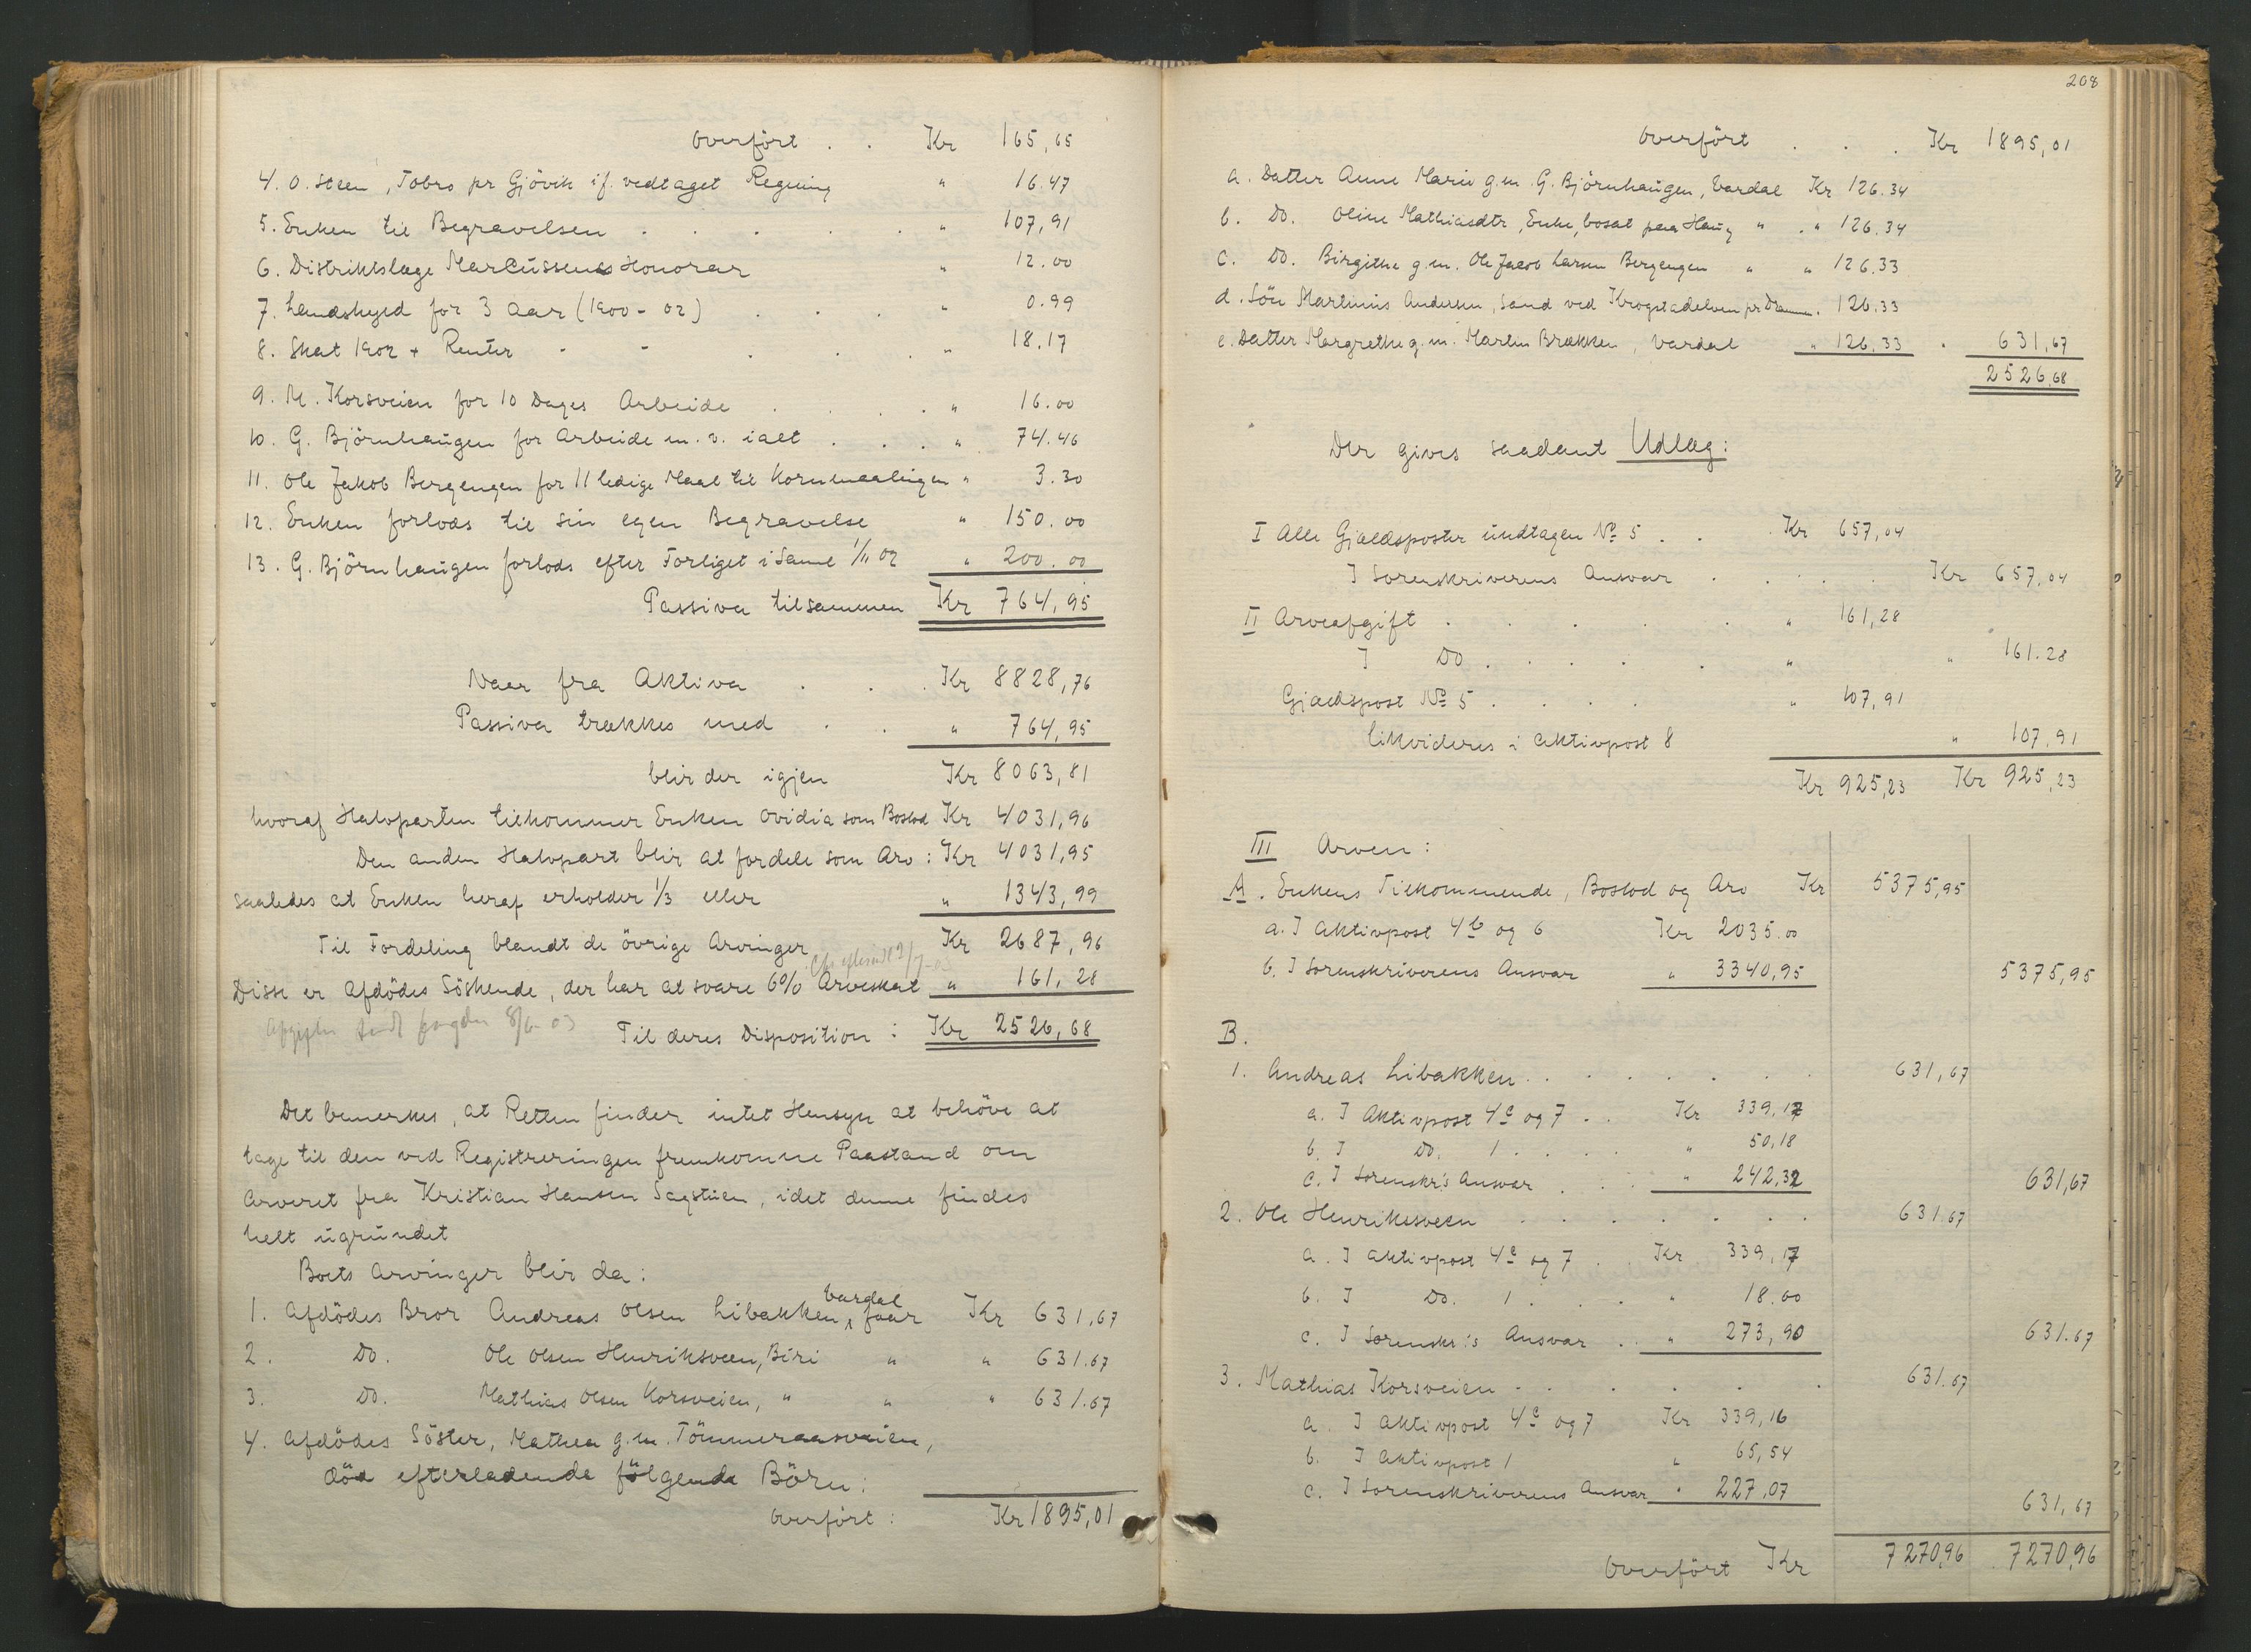 Overført . . Kr 165,65
4. O. Steen, Tobro pr Gjövik if. vedtaget Regning " 16.47
5. Enken til Begravelsen . . . . . " 107,91
6. Distriktslæge Marcussens Honorar " 12.00
7. Landskyld for 3 Aar (1900-02) . . . " 0.99
8. Skat 1902 + Renter - - . . . " 18.17
9. M. Korsveien for 10 Dages Arbeide . . . . " 16.00
10. G. Björnhaugen for Arbeide m. v. ialt . . . " 74.46
11. Ole Jakob Bergengen for 11 ledige Maal til Kornmaalingen " 3.30
12. Enken forlods til sin egen Begravelse " 150.00
13. G. Björnhaugen forlods efter Forliget i Saml 1/11 02 " 200.00
Passiva tilsammen Kr 764,95
Naar fra Aktiva . . . Kr 8828,76
Passiva trækkes med . . " 764,95
blir der igjen Kr 8063,81
hvoraf Halvparten tilkommer Enken Ovidia som Boslod Kr 4031,96
Den anden Halvpart blir at fordele som Arv : Kr 4031,95
saaledes at Enken heraf erholder 1/3 eller " 1343,99
Til Fordeling blandt de övrige Arvinger Kr 2687,96
Disse er Afdödes Söskende, der har at svare 6% Arveskat " 161,28
8/6-03
Til deres Disposition : Kr 2526,68
Det bemerkes, at Retten finder intet Hensyn at behöve at
tage til den ved Registreringen fremkomne Paastand om
Arveret fra Kristian Hansen Sagstuen, idet denne findes
helt ugrundet
Boets Arvinger blir da:
1. Afdödes Bror Andreas Olsen Libakken, Vardal faar Kr 631,67
2. Do. Ole Olsen Henriksveen, Biri " " 631.67
3. Do. Mathias Olsen Korsveien, " " " 631.67
4. Afdödes Söster, Mathea g.m. Tömmeraasveien,
död efterladende fölgende Börn:
Overført : Kr 1895,01
208
Overført . . . Kr 1895,01
a. Datter Anne Marie g.m. G. Björnhaugen, Vardal Kr 126.34
b. Do. Oline Mathiasdtr, Enke, bosat paa Haug " . " 126.34
c. Do. Birgithe g.m. Ole Jacob Larsen Bergengen " " 126.33
d. Sön Martinus Andersen, Sand ved Krogstadelven pr Drammen. 126.33
e. Datter Margrethe g.m. Martin Brækken, Vardal " 126.33 " 631,67
2526,68
Der gives saadant Udlæg:
I Alle Gjældsposter undtagen No 5 . . Kr 657,04
I Sorenskriverens Ansvar . . . . Kr 657,04
II Arveafgift . . . . . " 161,28
I Do . . . . . " " 161.28
Gjældspost No 5 . . . . " 107,91
likvideres i Aktivpost 8 " 107.91
Kr 925,23 Kr 925,23
III Arven:
A. Enkens Tilkommende, Boslod og Arv Kr 5375,95
a. I Aktivpost 4 b og 6 Kr 2035.00
b. I Sorenskriverens Ansvar " 3340,95 5375,95
B.
1. Andreas Libakken . . . . . . . 631,67
a. I Aktivpost 4 c og 7 . . Kr 339,17
b. I Do. 1 . . . . " 50,18
c. I Sorenskr's Ansvar . . . " 242,32 631,67
2. Ole Henriksveen . . . . . . . 631.67
a. I Aktivpost 4 c og 7 . . Kr 339,17
b. I Do. 1 . . . . " 18.00
c. I Sorenskr:s Ansvar . . " 273,90 631.67
3. Mathias Korsveien - . . . . . 631.67
a. I Aktivpost 4 c og 7 Kr 339,16
b. I Aktivpost 1 " 65,54
c. I Sorenskriverens Ansvar " 227,07 631,67
Overført Kr 7270,96 7270,96